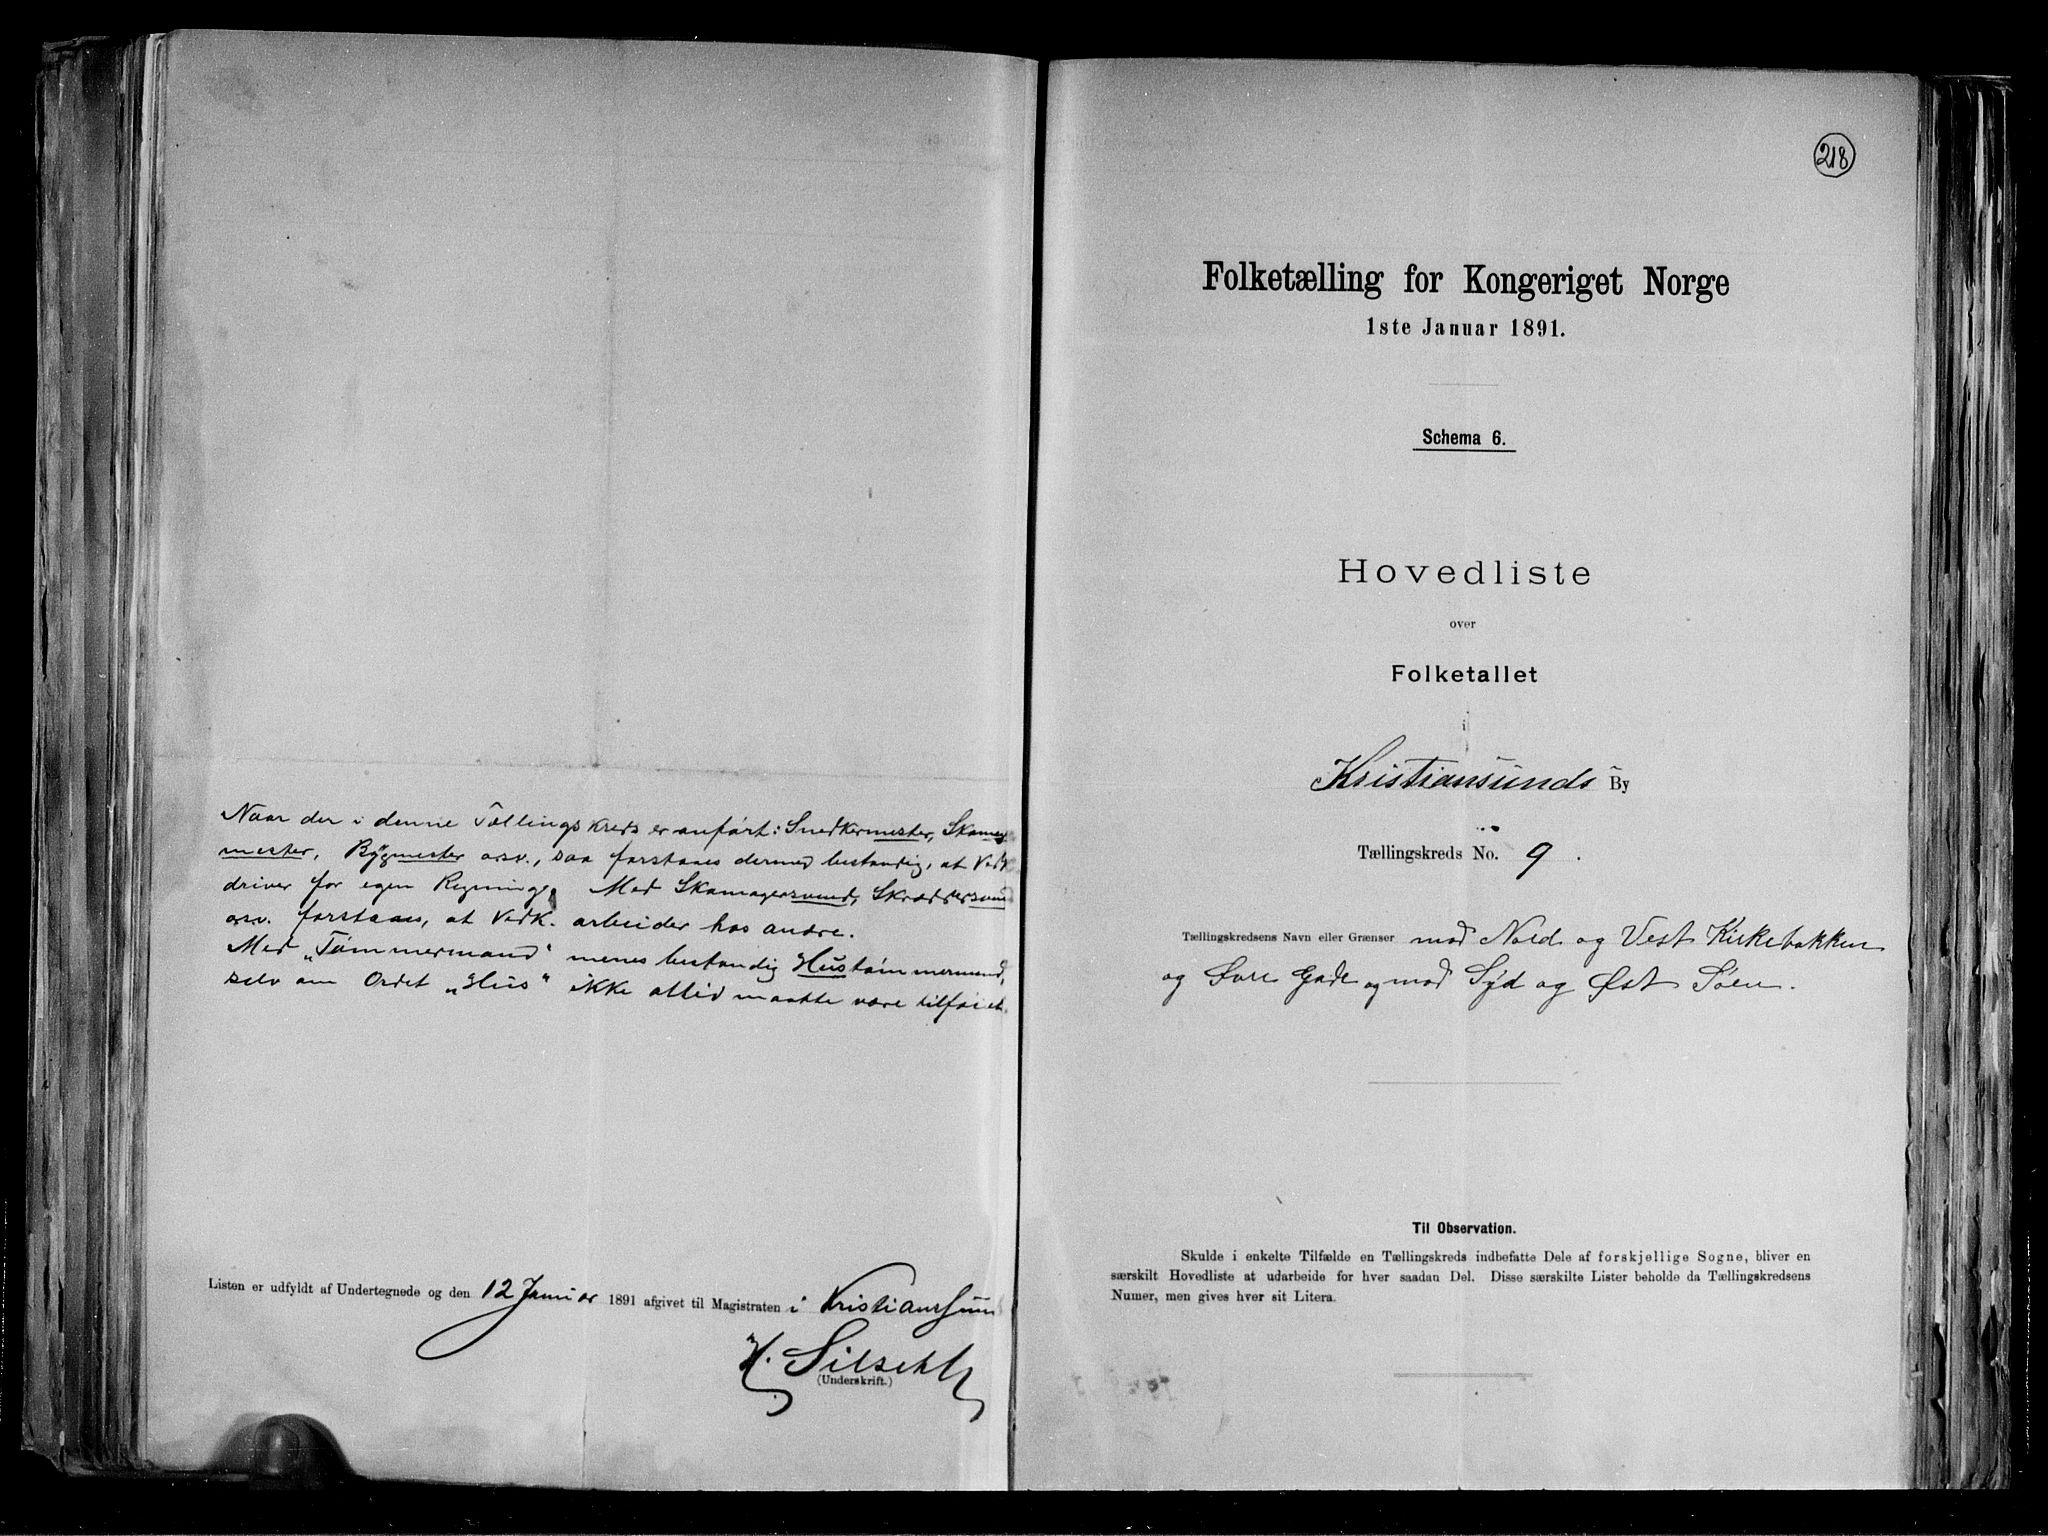 Naar der i denne Tællingskreds er anført: Snedkermester, Skomager
mester, Bygmester osv., saa forstaaes dermed bestandig, at Vedk
driver for egen Regning. Med Skomagersvend, Skræddersvend
osv. forstaaes, at Vedk. arbeider hos andre.
Med „Tømmermand“ menes bestandig Hustømmermand,
selv om Ordet „Hus“ ikke altid maatte være tilføiet.
Listen er udfyldt af Undertegnede og den 12 Januar 1891 afgivet til Magistraten i Kristianssund
H.
(Underskrift.)
218
Folketælling for Kongeriget Norge
1ste Januar 1891.
Schema 6.
Hovedliste
over
Folketallet
i
Kristiansunds By
Tællingskreds No. 9.
Tællingskredsens Navn eller Grænser mod Nord og Vest Kirkebakken
og Øvre Gade og mod Syd og Øst Søen.
Til Observation.
Skulde i enkelte Tilfælde en Tællingskreds indbefatte Dele af forskjellige Sogne, bliver en
særskilt Hovedliste at udarbeide for hver saadan Del. Disse særskilte Lister beholde da Tællingskredsens
Numer, men gives hver sit Litera.